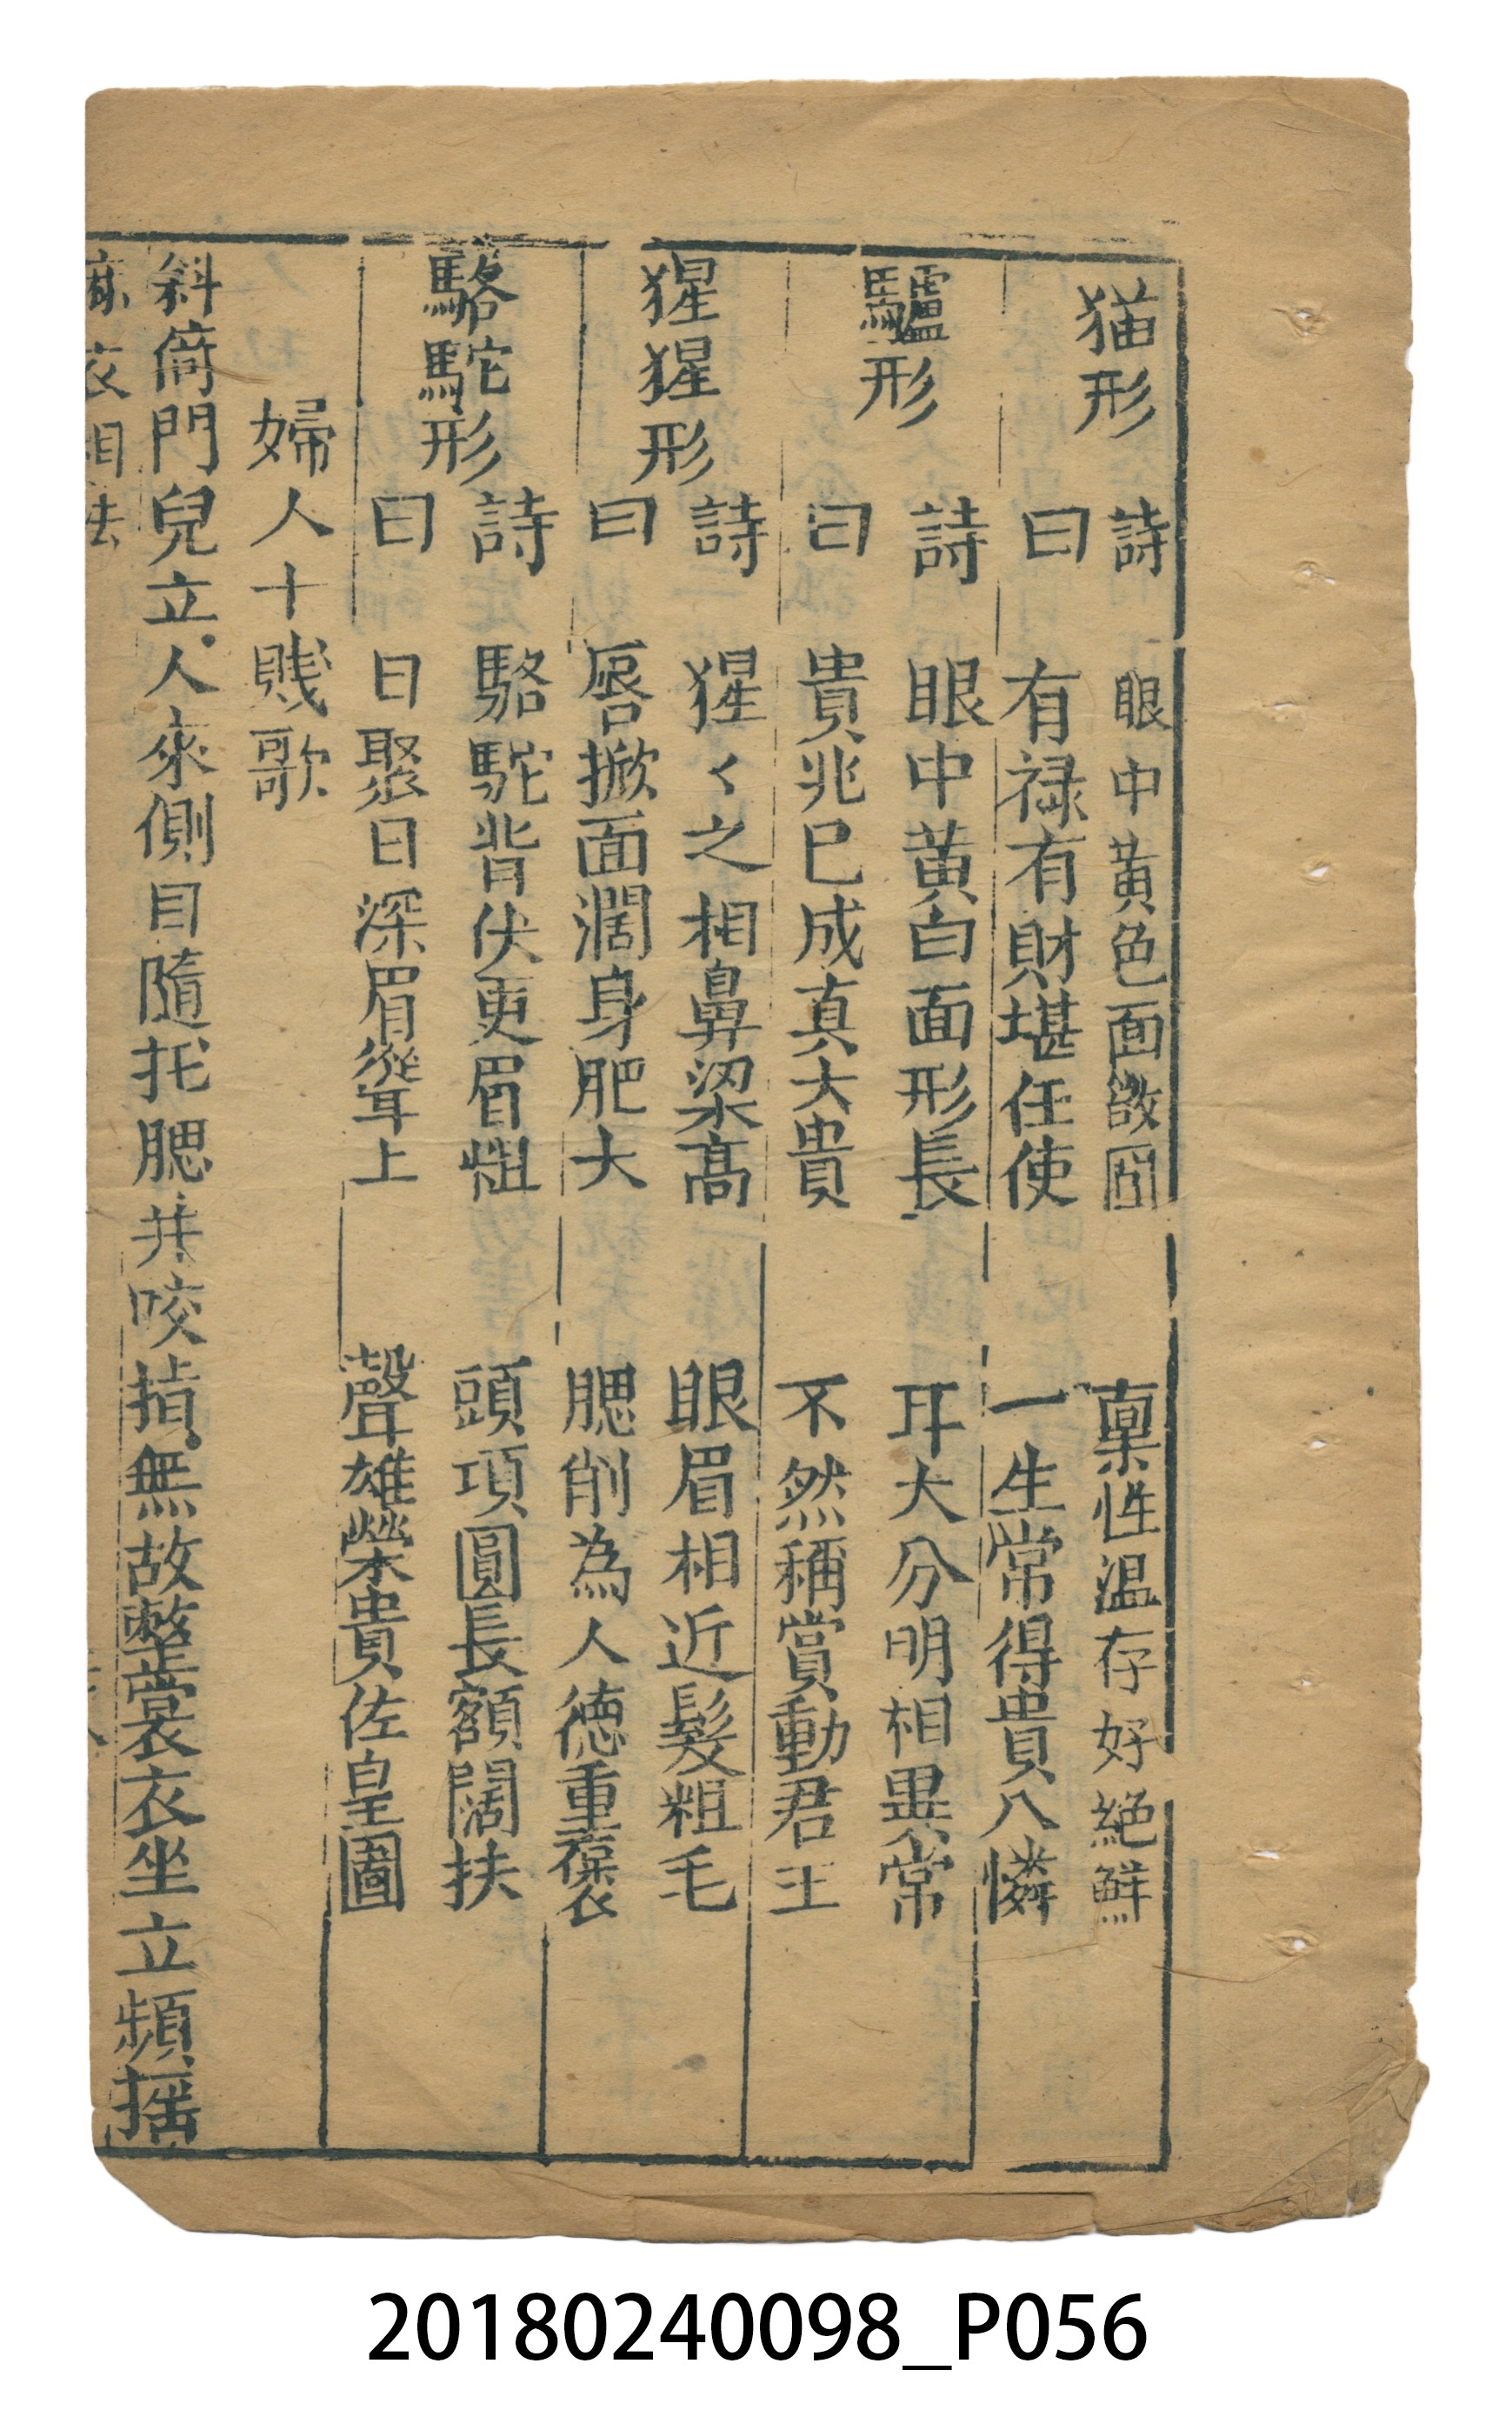 猫形
詩 眼中黃色面啟囙 稟性温存好絕鮮
曰 有禄有財堪任使 一生常得貴人憐
驢形
詩 眼中黄白面形長 耳大分明相異常
曰 貴兆已成真大貴 不然稱賞動君王
猩猩形
詩 猩〱之相鼻梁高 眼眉相近髮粗毛
曰 唇掀面濶身肥大 腮削為人德重褒
駱駝形
詩 駱駝背伏更眉粗 頭項圓長額闊扶
曰 日聚日深眉聳上 聲雄榮貴佐皇圖
婦人十賎歌
斜倚門兒立人來側目隨托腮并咬指無故整裳衣坐立頻揺
麻衣相法
20180240098_P056